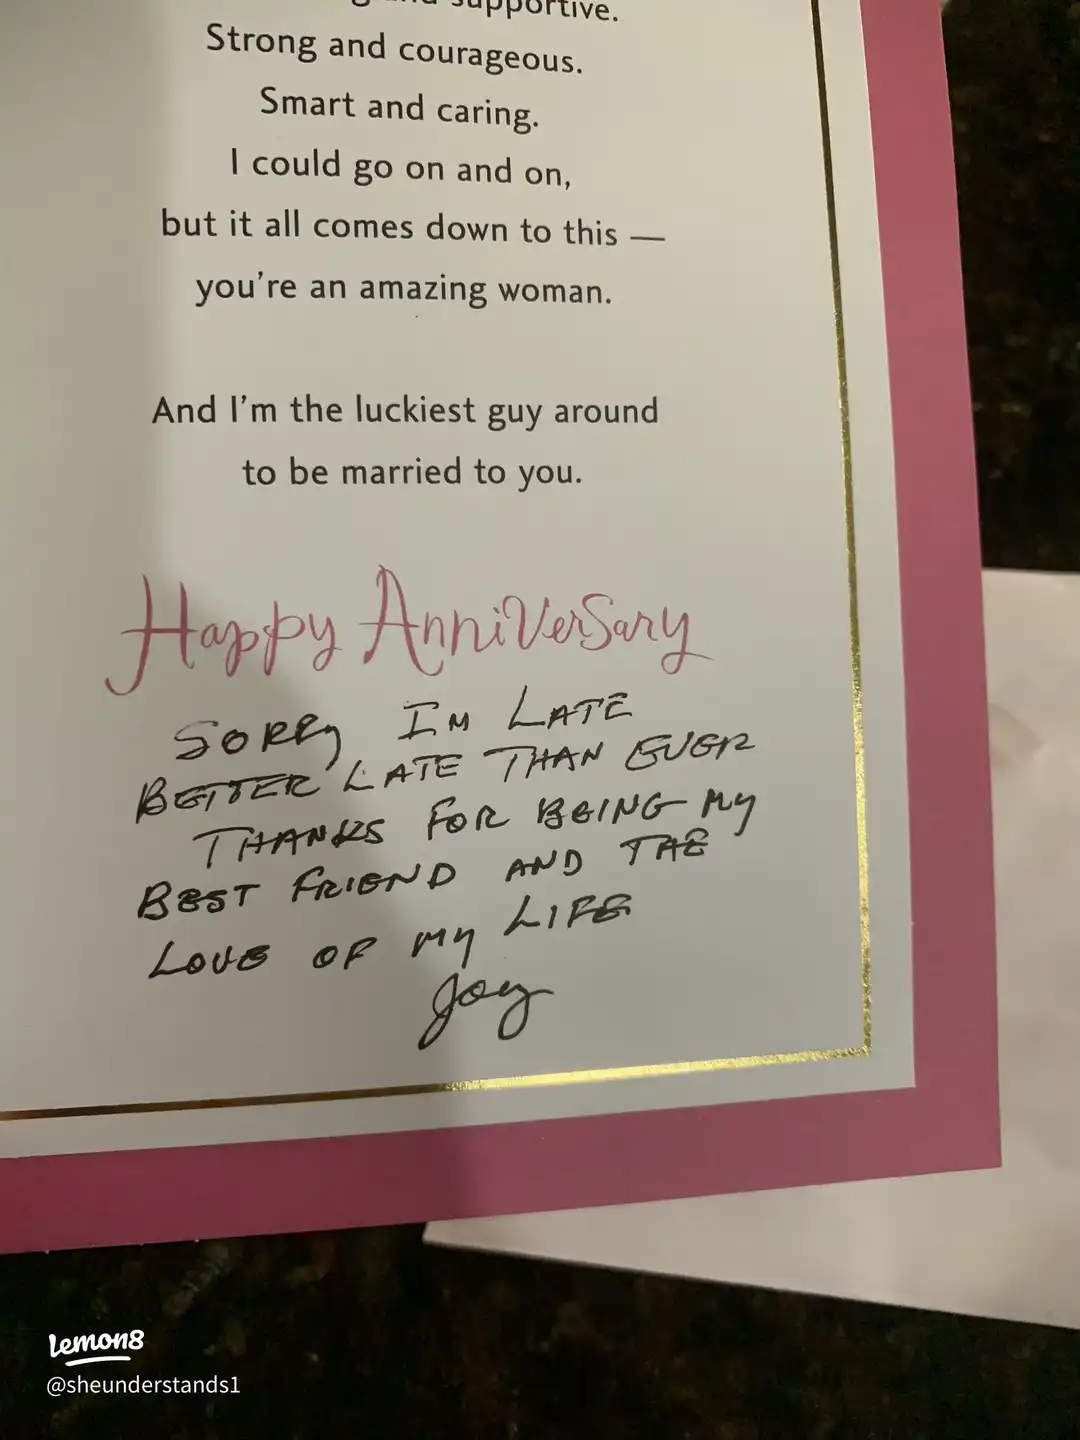 supportive.
Strong and courageous.
Smart and caring.
I could go on and on,
but it all comes down to this —
you're an amazing woman.
And I'm the luckiest guy around
to be married to you.
Happy Anniversary
SORRy Im LATE
BETTER LATE THAN EVER
THANKS FOR BEING My
BEST FRIEND AND THE
LOVE OF My LIFE
Joey
lemon8
@sheunderstands1